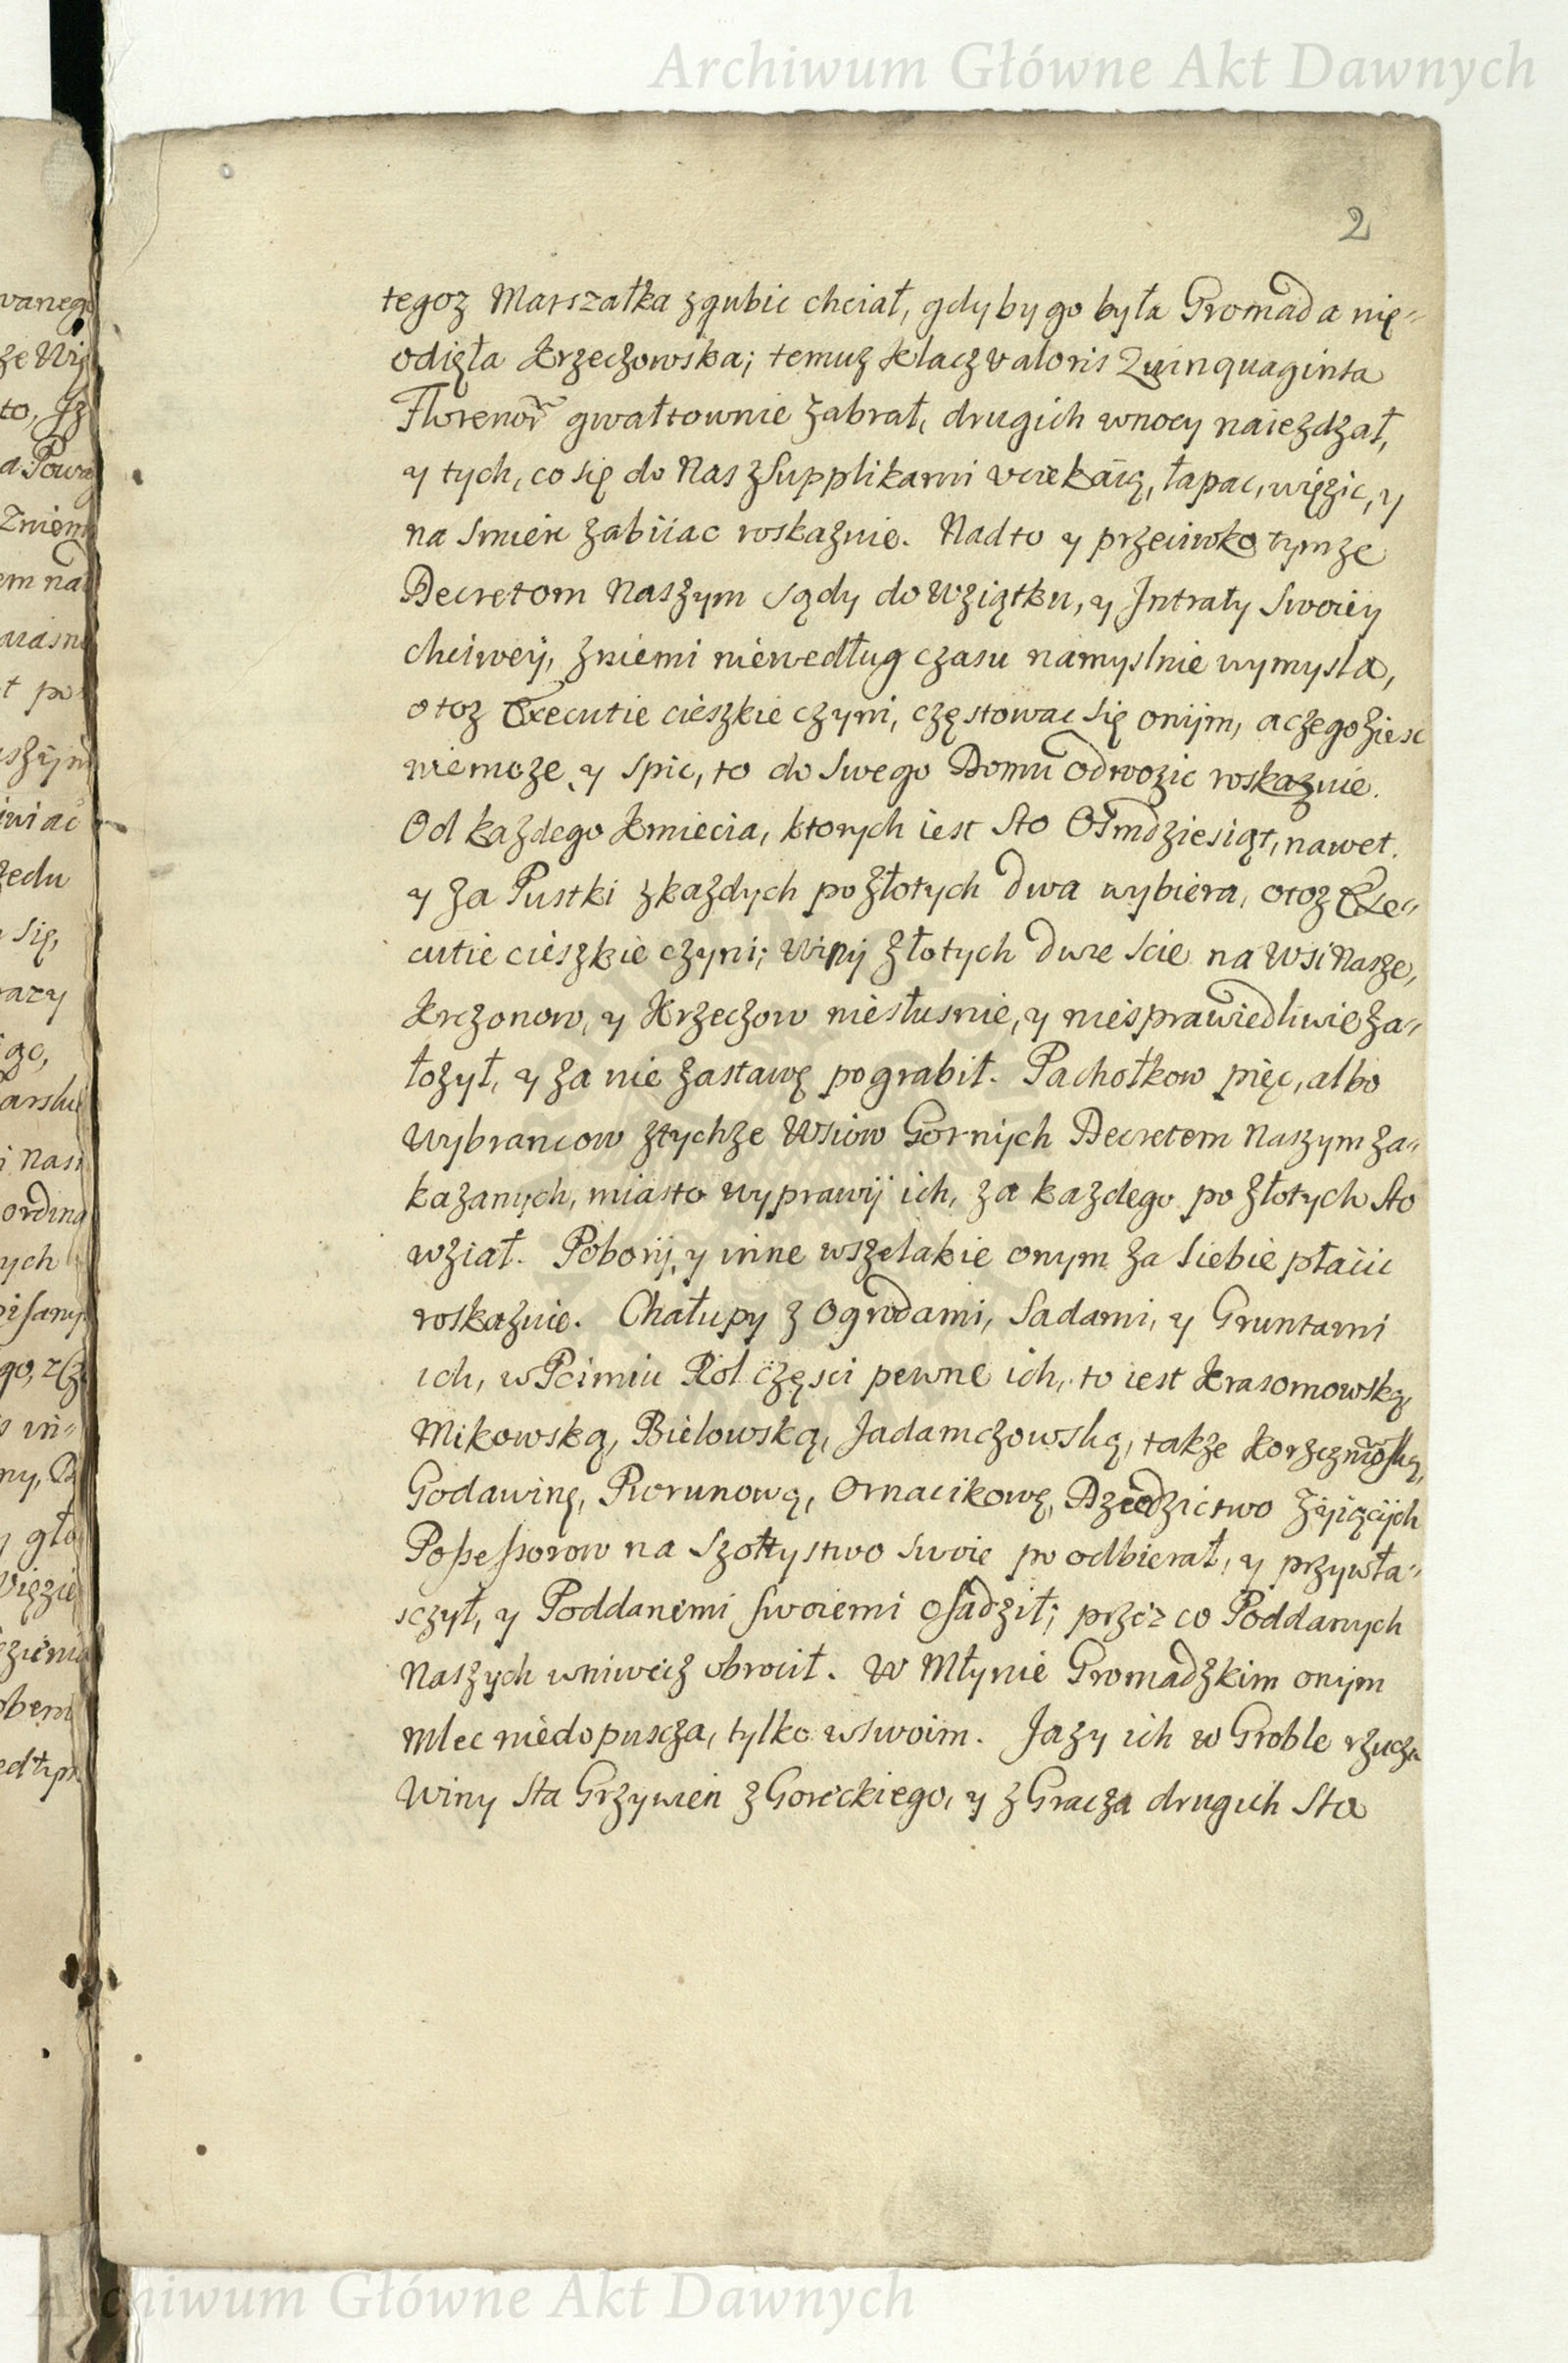 Archiwum Główne Akt Dawnych
2
tegoz Marszałka zgubic chciał, gdyby go była Gromada nię-
odięła Krzeczowska; temuz Klacz valoris Quinquaginta
Florenor gwałtownie zabrał, drugich wnocy naiezdzał,
y tych, co się do Nas zSupplikami vciekaią, łapac, więzic, y
na Smierc zabiiac roskazuie. Nadto y przeciwko tymze
Decretom Naszym sądy do Wziątku, y Intraty Swoiey
chciwey, zniemi niewedług czasu namyslnie wymysla,
otoz Executie cieszkie czyni, częstowac się onijm, aczego ziesc
niemoze y spic, to do Swego Domu odwozic roskazuie.
Od kazdego Kmiecia, ktorych iest Sto Osmdziesiąt, nawet
y za Pustki zkazdych pozłotych dwa wybiera, otoz Exe-
cutie cieszkie czyni; Winij złotych dwie scie na Wsi Nasze,
Krczonow, y Krzeczow niesłusnie, y niesprawiedliwie za-
łozył, y za nie zastawę pograbił. Pachołkow pięc, albo
Wybrancow ztychze Wsiow Gornych Decretem Naszym za-
kazanych, miasto wyprawij ich, za kazdego po złotych Sto
wział. Poborij y inne wszelakie onym za Siebie płacic
roskazuie. Chałupy z Ogrodami, Sadami, y Gruntami
ich, wPcimiu Rol częsci pewne ich, to iest Krasomowską,
Mikowską, Bielowską, Jadamczowską, takze
Godawinę, Piorunową, Ornacikowę, Dziedzictwo zyiącijch
Possessorow na Szołtystwo Swoie po odbierał, y przywła-
sczył, y Poddanemi swoiemi osadził; przez co Poddanych
Naszych wniwecz obrocił. W Młynie Gromadzkim onijm
Mlec niedopuscza, tylko wswoim. Jazy ich w Groble rzucza
Winy Sta Grzywien zGoreckiego, y zGracza drugich Sta
Archiwum Główne Akt Dawnych